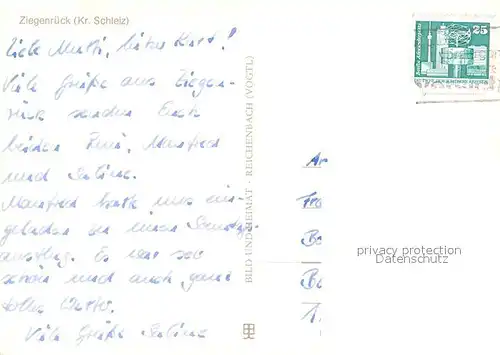 Ziegenrück (Kr. Schleiz)
Liebe Mutti, lieber Kurt!
Viele Grüße aus Ziegen-
rück senden Euch
beiden Manfred
und
Manfred hatte uns ein-
geladen zu einem
ausflug. Es war sehr
schön und auch ganz
tolles Wetter.
Viele Grüße
BILD UND HEIMAT · REICHENBACH (VOGTL)
25
privacy protection
Datenschutz